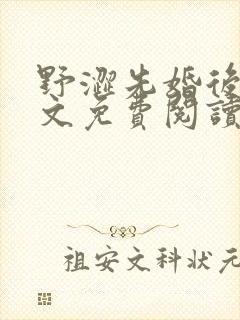 野澀先婚後
文免費閱讀
祖安文科狀元